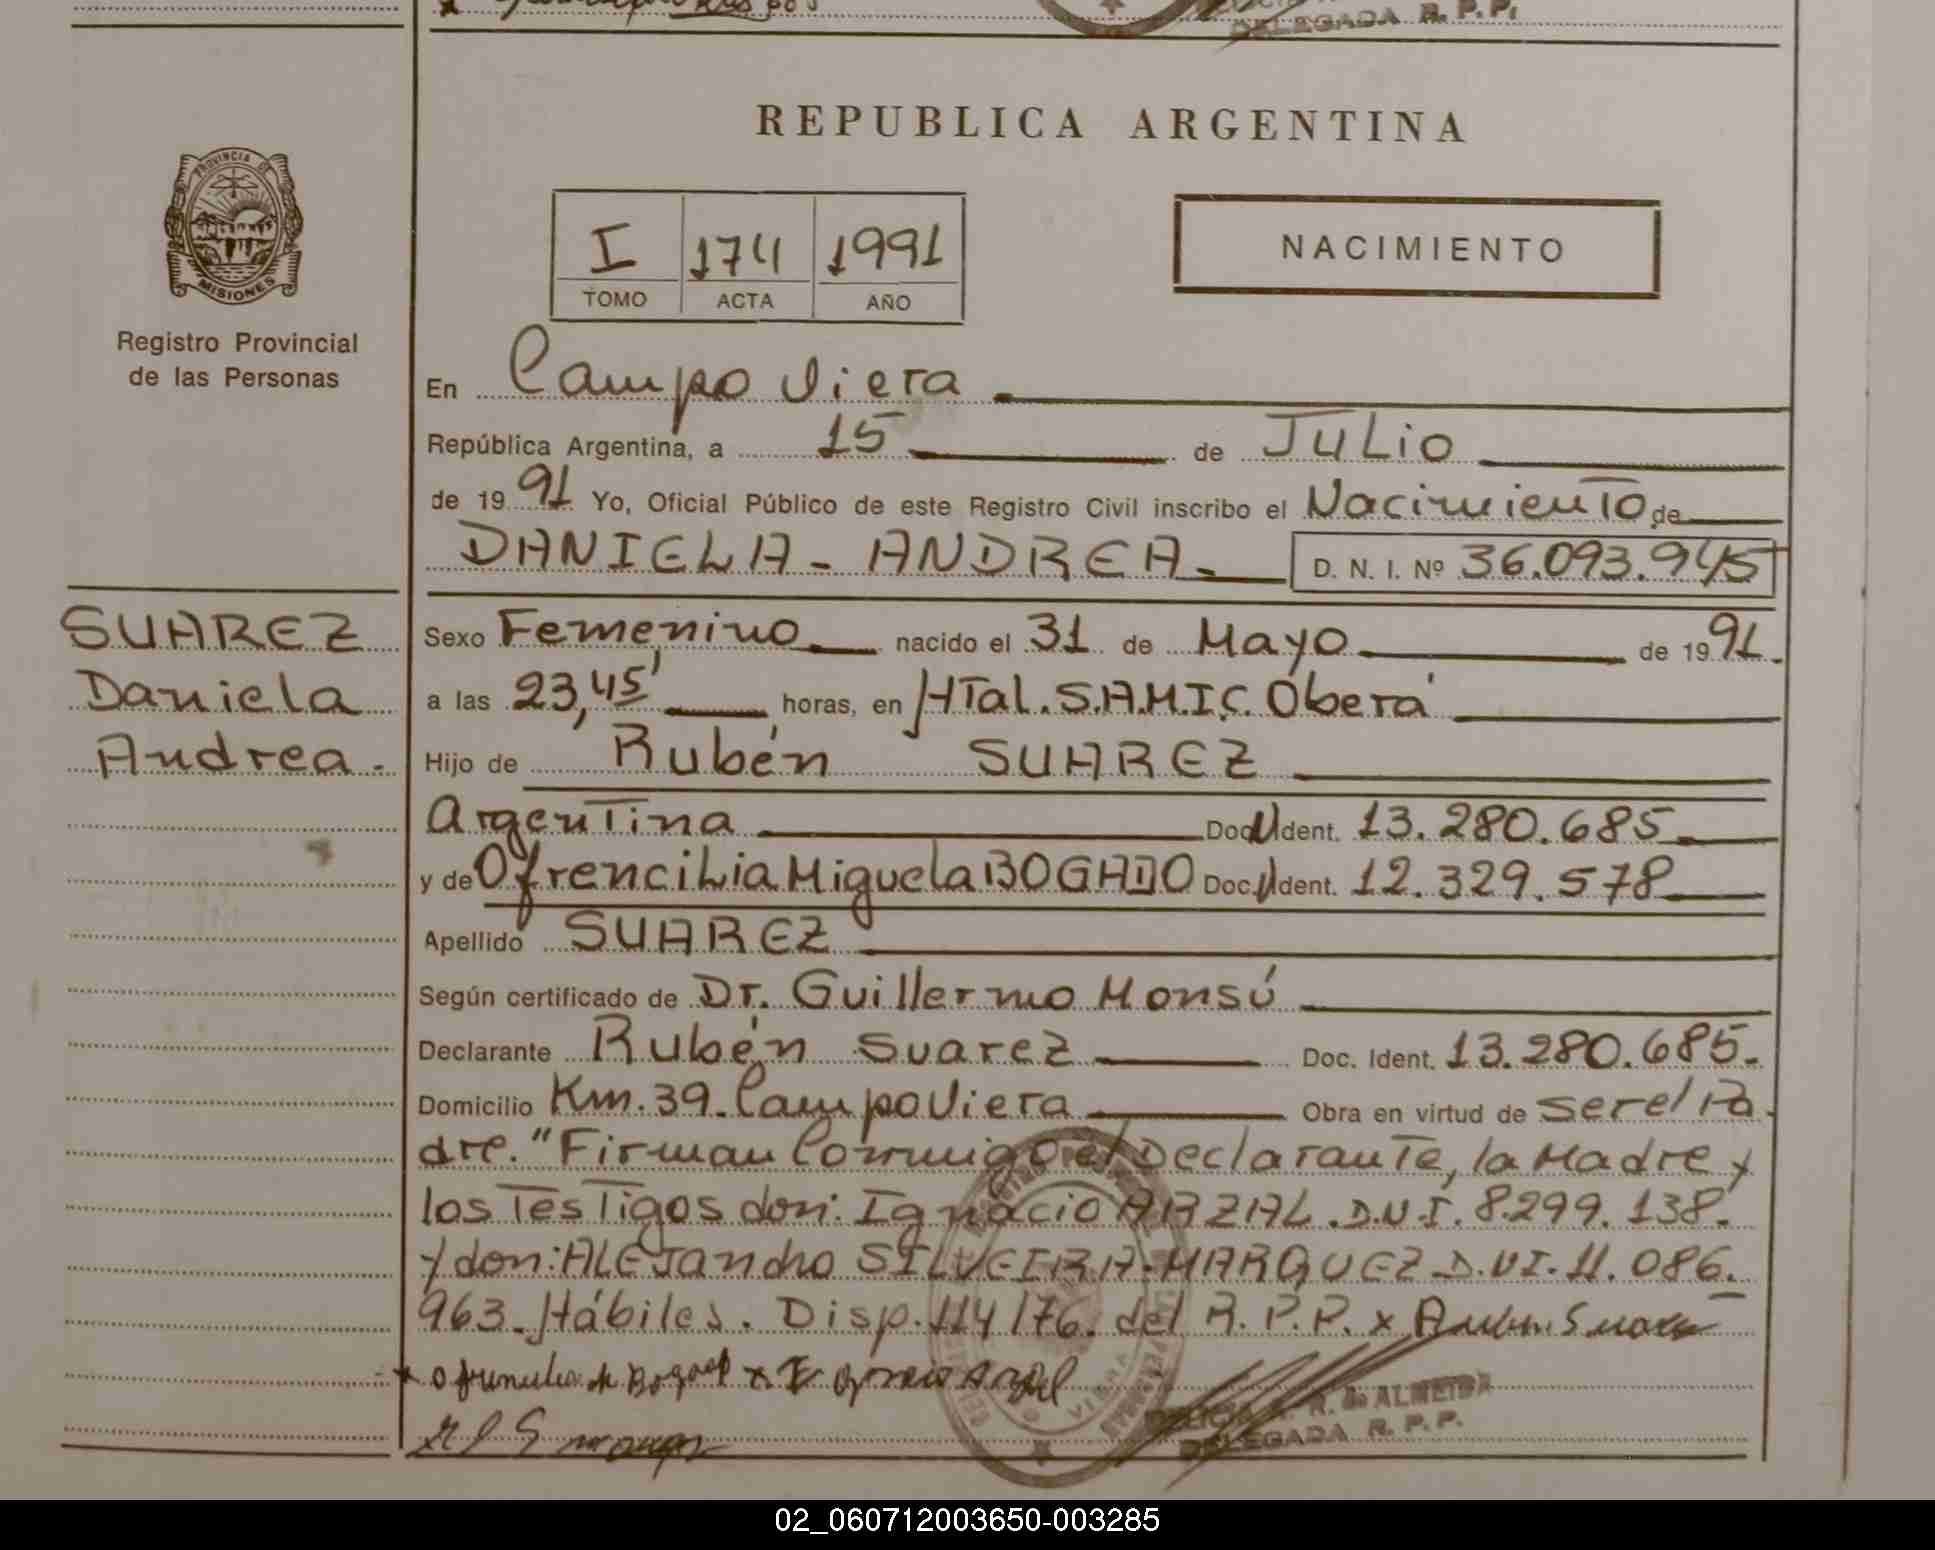 DELEGADA R. P. P.
REPUBLICA ARGENTINA
PROVINCIA DE
MISIONES
Registro Provincial
de las Personas
I 174 1991
TOMO ACTA AÑO
NACIMIENTO
En Campo Viera
República Argentina, a 15 de JULIO
de 1991 Yo, Oficial Público de este Registro Civil inscribo el Nacimiento de
DANIELA - ANDREA - D. N. I. Nº 36.093.945
SUAREZ
Daniela
Andrea.
Sexo Femenino nacido el 31 de Mayo de 1991.
a las 23,45' horas, en HTal. S.A.M.I.C. Oberá
Hijo de Rubén SUAREZ
Argentina Doc. Ident. 13.280.685
y de Ofrencilia Miguela BOGADO Doc. Ident. 12.329.578
Apellido SUAREZ
Según certificado de Dr. Guillermo Monsú
Declarante Rubén Suarez Doc. Ident. 13.280.685.
Domicilio Km. 39. Campo Viera Obra en virtud de ser el Pa
dre. "Firman Conmigo el Declarante, la Madre y
los Testigos don: Ignacio ARZAL. D.N.I. 8.299.138.
y don: ALEJandro SILVEIRA-MARQUEZ D.NI. 11.086.
963. Hábiles. Disp. 114/76. del R.P.P. x Rubn Suarez
x
DELICIA R. R. de ALMEIDA
DELEGADA R. P. P.
02_060712003650-003285